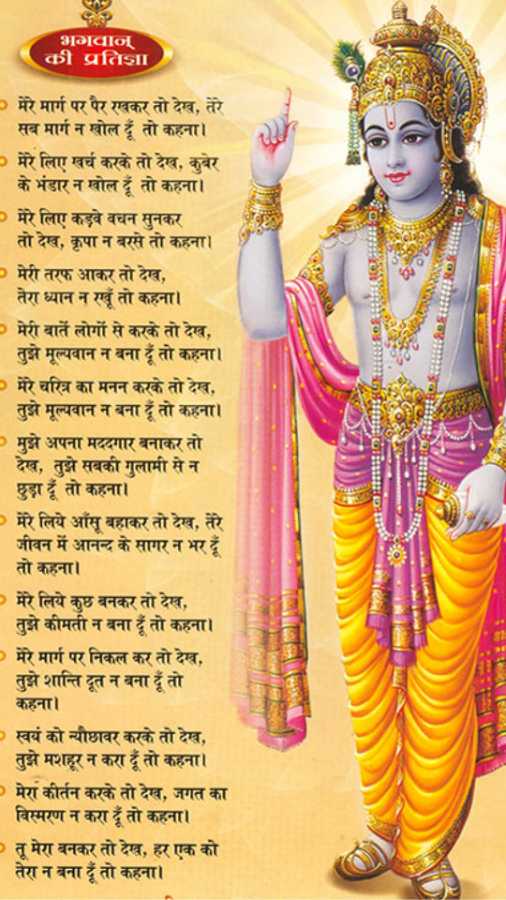 भगवान्
की प्रतिज्ञा
मेरे मार्ग पर पैर रखकर तो देख, तेरे
सब मार्ग न खोल दूँ तो कहना।
मेरे लिए खर्च करके तो देख, कुबेर
के भंडार न खोल दूँ तो कहना।
मेरे लिए कड़वे वचन सुनकर
तो देख, कृपा न बरसे तो कहना।
मेरी तरफ आकर तो देख,
तेरा ध्यान न रखूँ तो कहना।
मेरी बातें लोगों से करके तो देख,
तुझे मूल्यवान न बना दूँ तो कहना।
मेरे चरित्र का मनन करके तो देख,
तुझे मूल्यवान न बना दूँ तो कहना।
मुझे अपना मददगार बनाकर तो
देख, तुझे सबकी गुलामी से न
छुड़ा दूँ तो कहना।
मेरे लिये आँसू बहाकर तो देख, तेरे
जीवन में आनन्द के सागर न भर दूँ
तो कहना।
मेरे लिये कुछ बनकर तो देख,
तुझे कीमती न बना दूँ तो कहना।
मेरे मार्ग पर निकल कर तो देख,
तुझे शान्ति दूत न बना दूँ तो
कहना।
स्वयं को न्यौछावर करके तो देख,
तुझे मशहूर न करा दूँ तो कहना।
मेरा कीर्तन करके तो देख, जगत का
विस्मरण न करा दूँ तो कहना।
तू मेरा बनकर तो देख, हर एक को
तेरा न बना दूँ तो कहना।